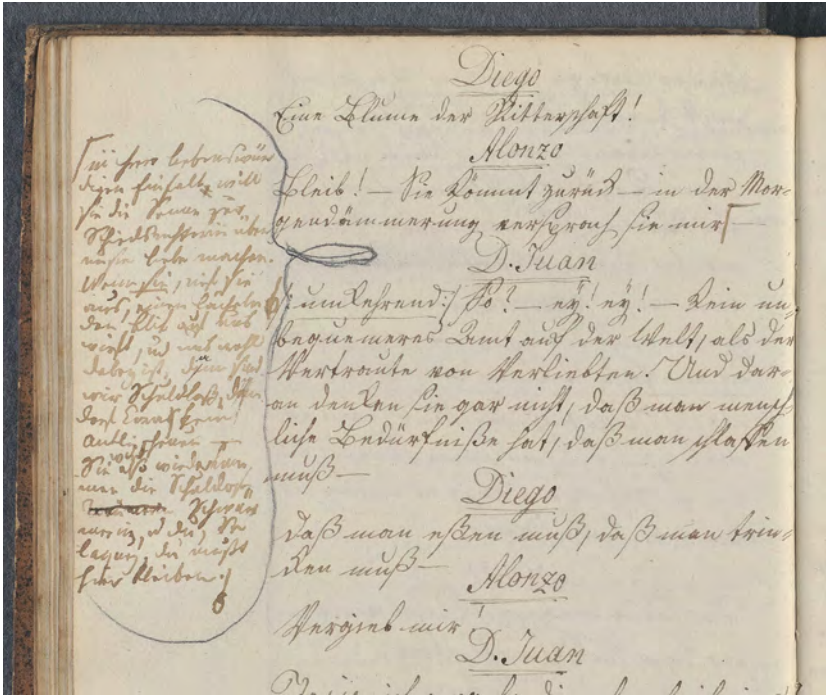 Diego
Eine Blume der Ritterschaft!
Alonzo
Bleib! — Sie kömmt zurück — in der Mor-
gendämmerung versprach sie mir —
D. Juan
/: umkehrend :/ So? — ey! ey! — Kein un-
bequemeres Amt auf der Welt, als der
Vertraute von Verliebten! Und dar-
an denken sie gar nicht, daß man mensch-
liche Bedürfniße hat, daß man schlaffen
muß —
Diego
daß man eßen muß, daß man trin-
ken muß —
Alonzo
Vergieb mir!
D. Juan
in ihrer liebenswür
digen Einfalt, will
sie die Sonne zur
Schiedsrichterin über
unsre Liebe machen.
Wenn sie, rief sie
aus, einen lächeln
den Blik auf uns
wirft, und uns wohl
dabey ist, dann sind
wir Schuldlos, dann
darf
Sie wird also wiederkom
men die Schuldlose
Schwär
merin, u du,
du mußt
hier bleiben.